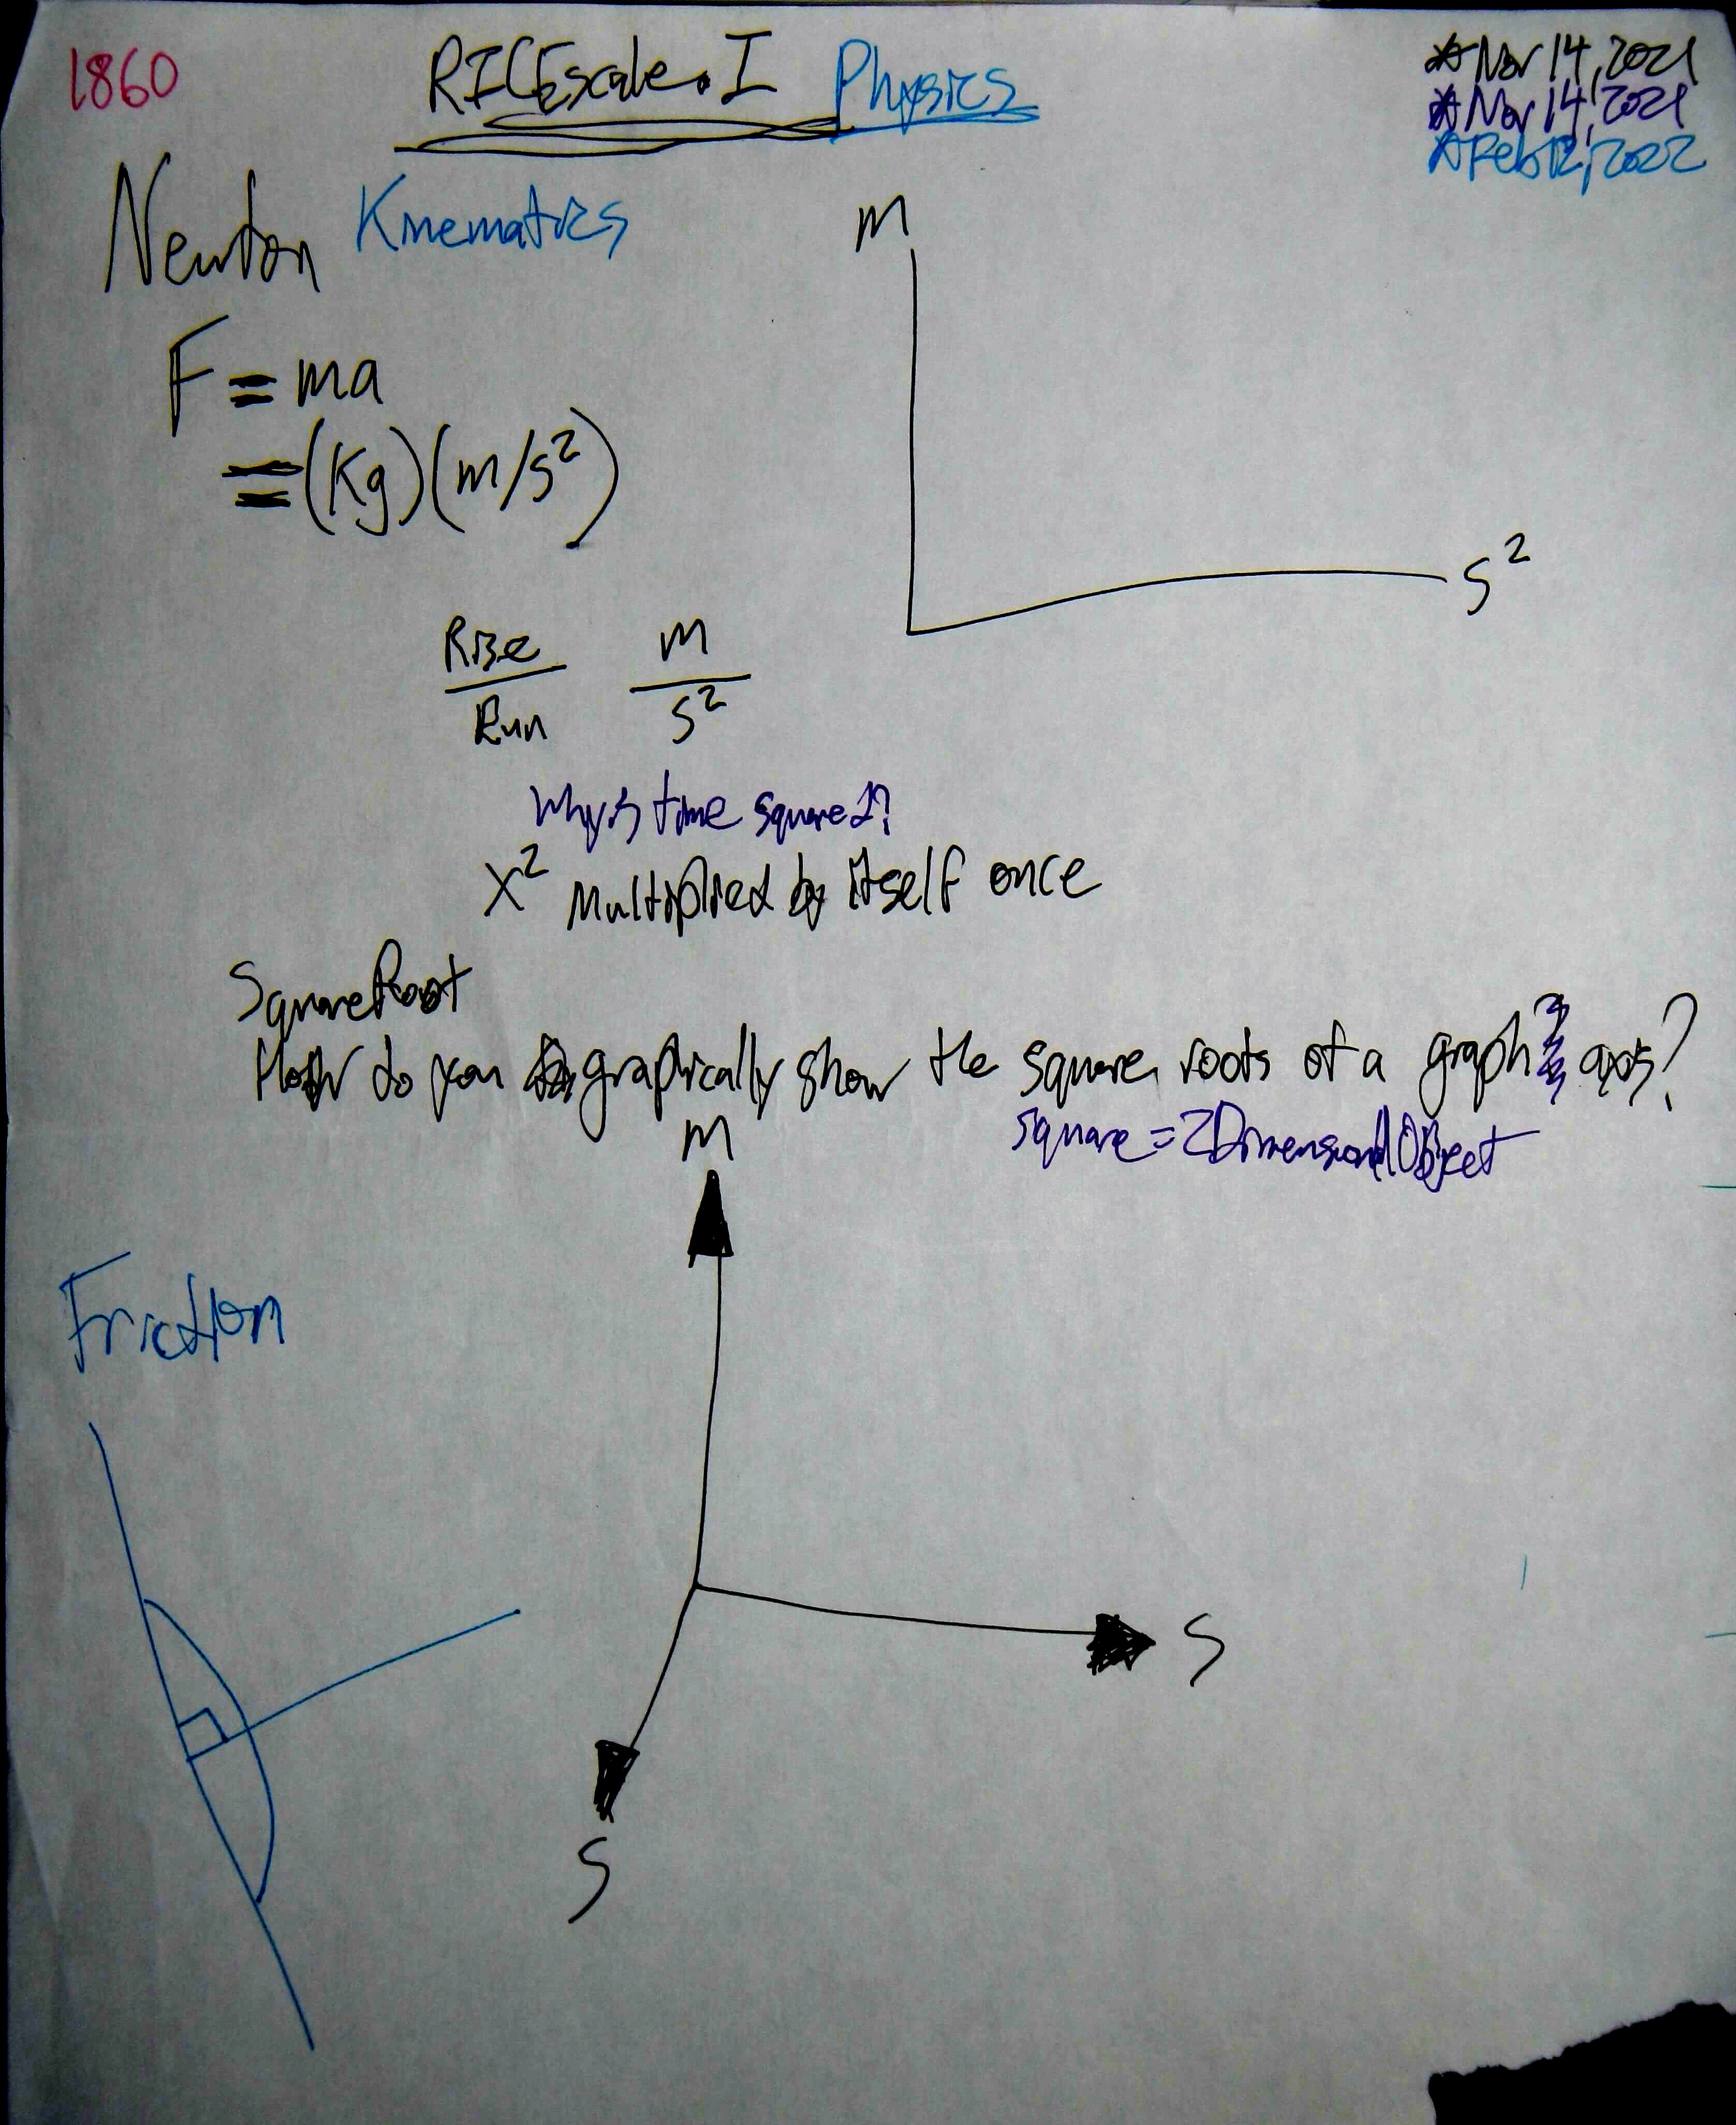 1860
RICEscale.I Physics
*Nov 14, 2021
*Nov 14, 2021
*Feb 12, 2022
Newton Kinematics
F = ma
= (Kg)(m/s²)
m
s²
Rise m
Run s²
Why is time squared?
x² Multiplied by itself once
SquareRoot
How do you graphically show the square roots of a graph axis?
square = 2DimensionalObject
m
Friction
s
s